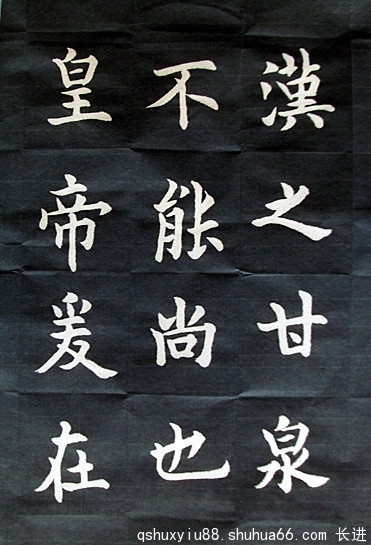 漢之甘泉
不能尚也
皇帝爰在
qshuxyiu88.shuhua66.com 长进